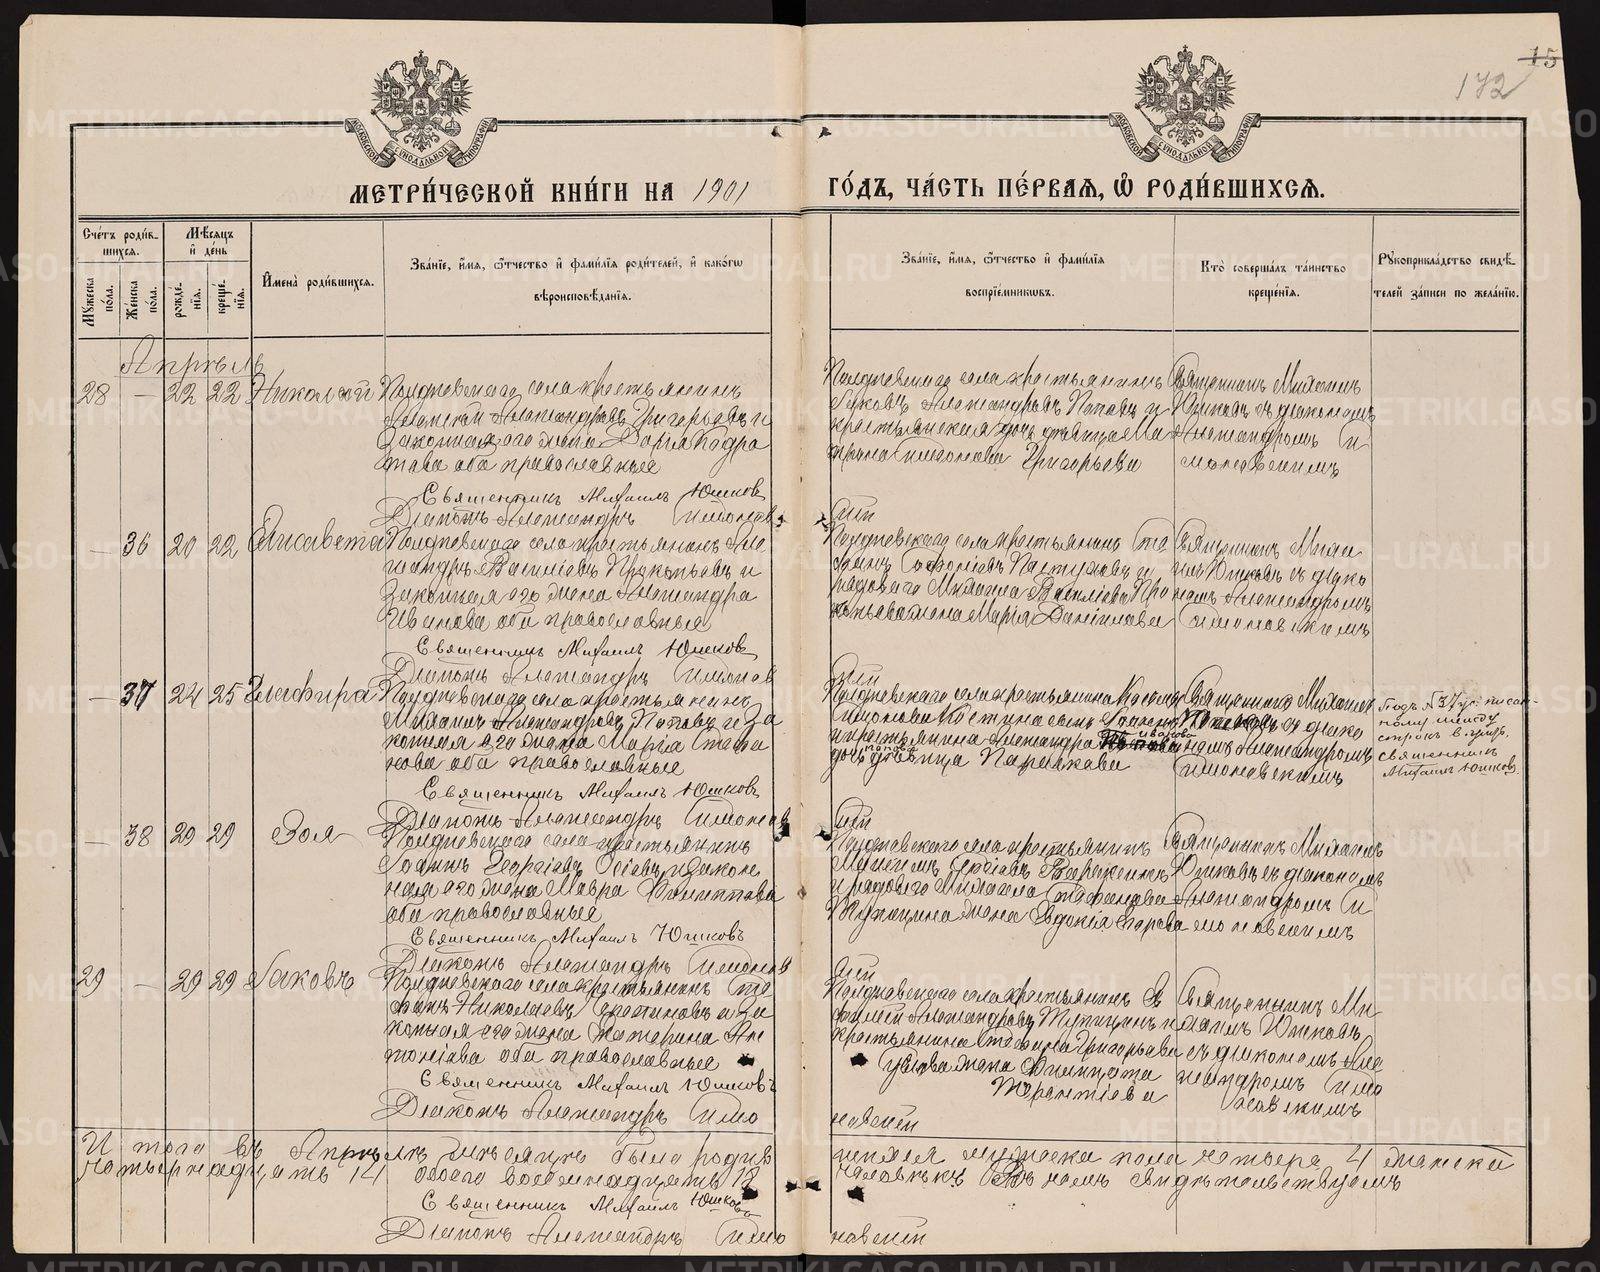 15
172
МЕТРИ́ЧЕСКОЙ КНИ́ГИ НА 1901 ГО́ДЪ, ЧА́СТЬ ПЕ́РВАЯ, Ѡ҆ РОДИ́ВШИХСЯ.
Сче́тъ роди́вшихся.
Мꙋ́жеска по́ла.
Же́нска по́ла.
Мѣ́сяцъ и҆ де́нь
рожде́нїя.
креще́нїя.
И҆мена̀ роди́вшихся.
Зва́нїе, и҆́мя, ѻ҆́тчество и҆ фами́лїя роди́телей, и҆ како́гѡ вѣроисповѣ́данїя.
Зва́нїе, и҆́мя, ѻ҆́тчество и҆ фами́лїя воспрїе́мниковъ.
Кто̀ соверша́лъ та́инство креще́нїя.
Рꙋкоприкла́дство свидѣ́телей за́писи по жела́нїю.
Апрѣль
28 — 22 22 Николай
Полдневскаго села крестьянинъ
Алексѣй Александровъ Григорьевъ и
законная его жена Дарья Кодра
това оба православные
Священникъ Михаилъ Юшковъ
Діаконъ Александръ Симонов
скій
Полдневскаго села крестьянинъ
Яковъ Александровъ Потовъ и
крестьянская дочь девица Ма
трона Симонова Григорьева
Священникъ Михаилъ
Юшковъ съ діакономъ
Александромъ Си
моновскимъ
— 36 20 22 Елисавета
Полдневскаго села крестьянинъ Але
ксандръ Василіевъ Прокопьевъ и
законная его жена Александра
Иванова оба православные
Священникъ Михаилъ Юшковъ
Діаконъ Александръ Симонов
скій
Полдневскаго села крестьянинъ Сте
фанъ Софоніевъ Пастуховъ и
рядоваго Михаила Василіева Про
копьева жена Марія Даніилова
Священникъ Миха
илъ Юшковъ съ діако
номъ Александромъ
Симоновскимъ
— 37 24 25 Глафира
Полдневскаго села крестьянинъ
Михаилъ Александровъ Потовъ и за
конная его жена Марія Стефа
нова оба православные
Священникъ Михаилъ Юшковъ
Діаконъ Александръ Симонов
скій
Полдневскаго села крестьянина
Симонова Костина сынъ
и крестьянина Александра Иванова
дочь девица Параскева
Священникъ Михаилъ
съ діако
номъ Александромъ
Симоновскимъ
Подъ № 37
между
строкъ
священникъ
Михаилъ Юшковъ.
— 38 29 29 Зоя
Полдневскаго села крестьянинъ
Іоаннъ Георгіевъ и закон
ная его жена Мавра
оба православные
Священникъ Михаилъ Юшковъ
Діаконъ Александръ Симонов
скій
Полдневскаго села крестьянинъ
Максимъ Сергіевъ
и рядоваго Михаила Стефанова
жена Евдокія
Священникъ Михаилъ
Юшковъ съ діакономъ
Александромъ Си
моновскимъ
29 — 29 29 Іаковъ
Полдневскаго села крестьянинъ Сте
фанъ Николаевъ и за
конная его жена Екатерина Ан
тоніева оба православные
Священникъ Михаилъ Юшковъ
Діаконъ Александръ Симо
новскій
Полдневскаго села крестьянинъ Ев
фимій Александровъ и
крестьянина Стефана Григорьева
жена
Терентіева
Священникъ Ми
хаилъ Юшковъ
съ діакономъ Але
ксандромъ Симо
новскимъ
Итого въ Апрѣлѣ мѣсяцѣ было родив
шихся мужеска пола четыре 4 женска
четырнадцать 14 обоего восемнадцать 18
человѣкъ Въ чемъ свидѣтельствуемъ
Священникъ Михаилъ Юшковъ
Діаконъ Александръ Симо
новскій